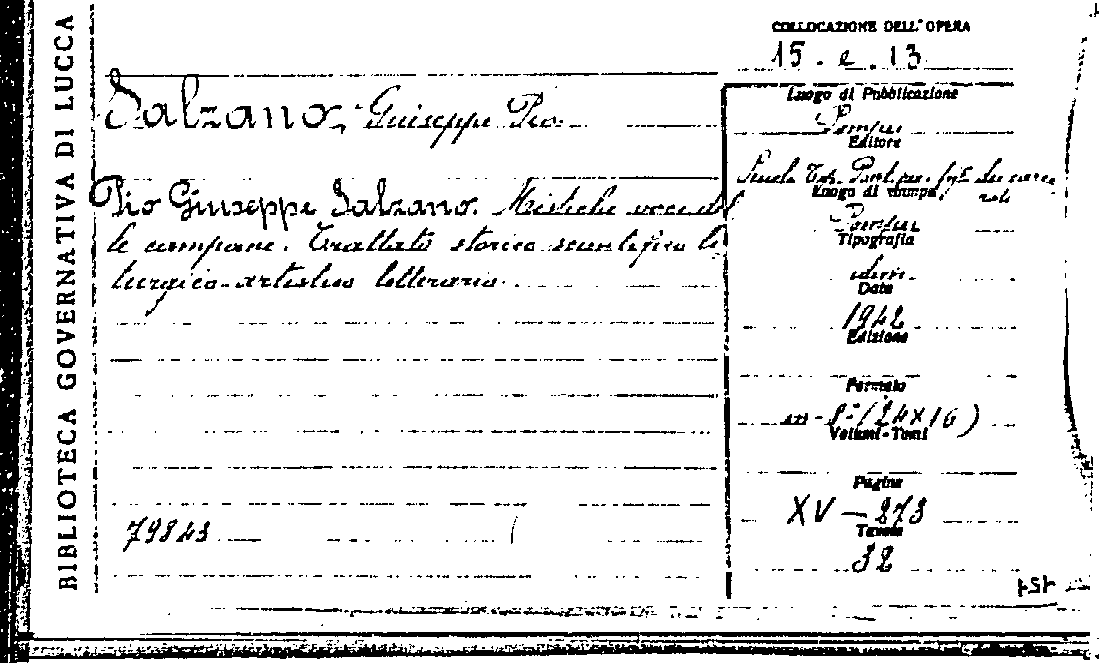 BIBLIOTECA GOVERNATIVA DI LUCCA
COLLOCAZIONE DELL'OPERA
15. e. 13
Salzano, Giuseppe Pio
Pio Giuseppe Salzano. Mistiche voci del
le campane. Trattato storico scientifico li
turgico-artistico letterario.
79843
Luogo di Pubblicazione
Pompei
Editore
Scuola Tip. Pont. pei figli dei carce
rati
Luogo di stampa
Pompei
Tipografia
idem
Data
1942
Edizione
Formato
in-8° (24×16)
Volumi-Tomi
Pagine
XV — 273
Tavole
32
151